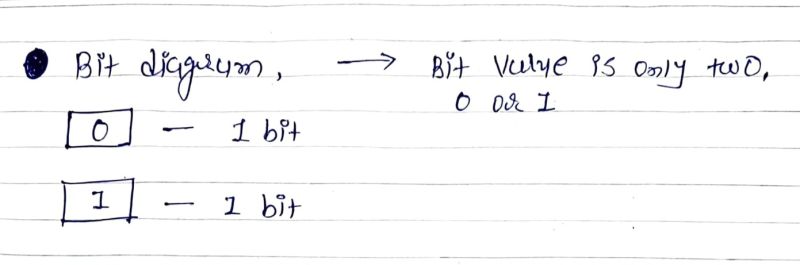 Bit diagram, → Bit Value is only two,
0 or 1
0 — 1 bit
1 — 1 bit